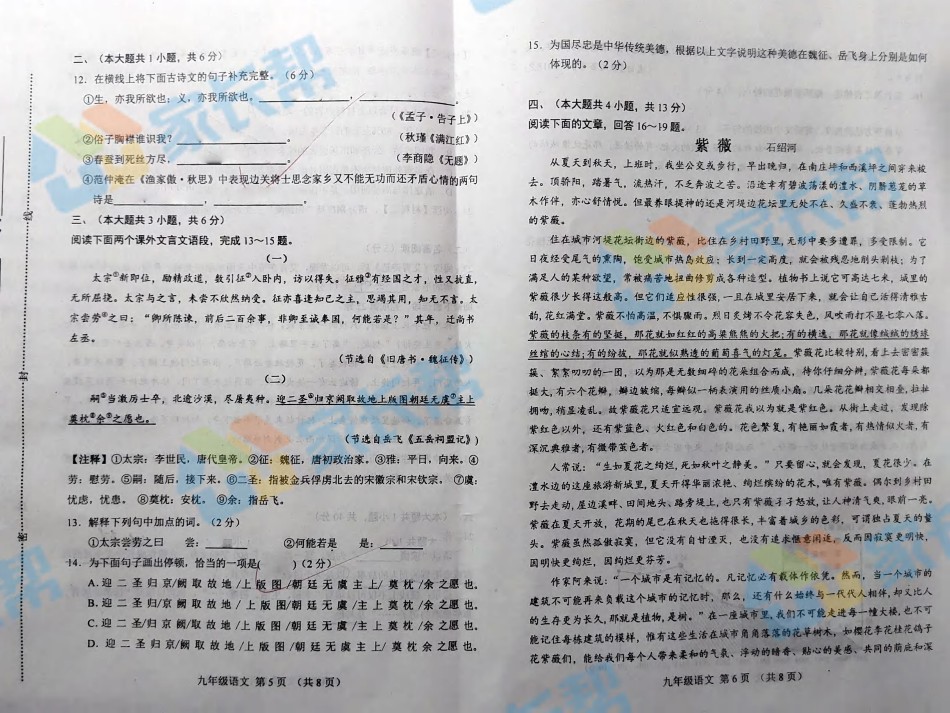 二、（本大题共1小题，共6分）
12．在横线上将下面古诗文的句子补充完整。（6分）
①生，亦我所欲也；义，亦我所欲也，
（《孟子·告子上》）
②俗子胸襟谁识我？（秋瑾《满江红》）
③春蚕到死丝方尽，（李商隐《无题》）
④范仲淹在《渔家傲·秋思》中表现边关将士思念家乡又不能无功而还矛盾心情的两句
诗是，。
三、（本大题共3小题，共6分）
阅读下面两个课外文言文语段，完成13～15题。
（一）
太宗①新即位，励精政道，数引征②入卧内，访以得失。征雅③有经国之才，性又抗直，
无所屈挠。太宗与之言，未尝不欣然纳受。征亦喜逢知己之主，思竭其用，知无不言。太
宗尝劳④之曰：“卿所陈谏，前后二百余事，非卿至诚奉国，何能若是？”其年，迁尚书
左丞。
（节选自《旧唐书·魏征传》）
（二）
嗣⑤当激厉士卒，北逾沙漠，尽屠夷种。迎二圣⑥归京阙取故地上版图朝廷无虞⑦主上
奠枕⑧余⑨之愿也。
（节选自岳飞《五岳祠盟记》）
【注释】①太宗：李世民，唐代皇帝。②征：魏征，唐初政治家。③雅：平日，向来。④
劳：慰劳。⑤嗣：随后，接下来。⑥二圣：指被金兵俘虏北去的宋徽宗和宋钦宗。⑦虞：
忧虑，忧患。⑧奠枕：安枕。⑨余：指岳飞。
13．解释下列句中加点的词。（2分）
①太宗尝劳之曰 尝： ②何能若是 是：
14．为下面句子画出停顿，恰当的一项是（ ）（2分）
A. 迎二圣归京/阙取故地/上版图/朝廷无虞主上/奠枕/余之愿也。
B. 迎二圣归京/阙取故地/上版图/朝廷无虞/主上奠枕/余之愿也。
C. 迎二圣归京阙/取故地/上版图/朝廷无虞主上/奠枕/余之愿也。
D. 迎二圣归京阙/取故地/上版图/朝廷无虞/主上奠枕/余之愿也。
九年级语文 第5页 （共8页）
15．为国尽忠是中华传统美德，根据以上文字说明这种美德在魏征、岳飞身上分别是如何
体现的。（2分）
四、（本大题共4小题，共13分）
阅读下面的文章，回答16～19题。
紫薇
石绍河
从夏天到秋天，上班时，我坐公交或步行，早出晚归，在南庄坪和西溪坪之间穿来梭
去。顶骄阳，踏暑气，流热汗，不乏奔波之苦。沿途丰有碧波荡漾的澧水、阴翳葱茏的草
木作伴，亦心舒情悦。但最养眼提神的还是河堤边花坛里无处不在、久盛不衰、蓬勃热烈
的紫薇。
住在城市河堤花坛街边的紫薇，比住在乡村田野里，无形中要多遭罪，多受限制。它
日夜经受尾气的熏陶，饱受城市热岛效应；长到一定高度，就会被残忍地削头剃枝；为了
满足人的某种欲望，常被痛苦地扭曲修剪成各种造型。植物书上说它可高达七米，城里的
紫薇很少长得这般高。但它们适应性很强，一旦在城里安居下来，就会让自己活得清雅古
韵，花红满堂。紫薇不怕高温，不惧骤雨。烈日炎烤不令花容失色，风吹雨打不显七零八落。
紫薇的枝条有的坚挺，那花就如红红的高粱熊熊的火把；有的横逸，那花就像缤缤的绣球
丝绾的心结；有的纷披，那花就似熟透的葡萄喜气的灯笼。紫薇花也较特别，看上去密密簇
簇、絮絮叨叨的一团，以为那是无数细碎的花朵组合而成，待你仔细分辨，紫薇花每朵都
挺大，有六个花瓣，瓣边皱缩，每瓣似一柄表演用的丝质小扇。几朵花花瓣相交相叠，拉扯
拥吻，稍显凌乱。故紫薇花只适宜远观。紫薇花我以为就是紫红色。从街上走过，发现除
紫红色以外，还有紫蓝色、火红色和白色的。花色繁复，有艳丽如霞者，有热情似火者，有
深沉典雅者，有微带蓝色者。
人常说：“生如夏花之绚烂，死如秋叶之静美。”只要留心，就会发现，夏花很少。在
澧水边的这座旅游新城里，夏天开得华丽浓艳、绚烂缤纷的花木，唯有紫薇。偶尔到乡村田
野去走动，屋边溪畔、田间地头、路旁堤上，也只有紫薇孑孑怒放，让人神清气爽，眼前一亮。
紫薇在夏天开放，花期的尾巴在秋天也拖得很长，丰富着城乡的色彩，可谓独占夏天的鳌
头。紫薇虽然孤傲寂寞，但它没有自甘湮灭，也没有追求惬意闲适，反而因寂寞更明快，
因明快更绚烂，因绚烂更芬芳。
作家阿来说：“一个城市是有记忆的。凡记忆必有载体作依凭。然而，当一个城市的
建筑不可能再来负载这个城市的记忆时，那么，还有什么始终与一代代人相伴，却又比人
的生存更为长久，那就是植物，是树。”在一座城市里，我们不可能走进每一幢大楼，也不可
能记住每栋建筑的模样，惟有这些生活在城市角角落落的花草树木，如樱花李花桂花鸽子
花紫薇们，能给我们每个人带来柔和的气氛、浮动的暗香、贴心的美感、共同的荫庇和深
九年级语文 第6页 （共8页）
线
封
密
家长帮